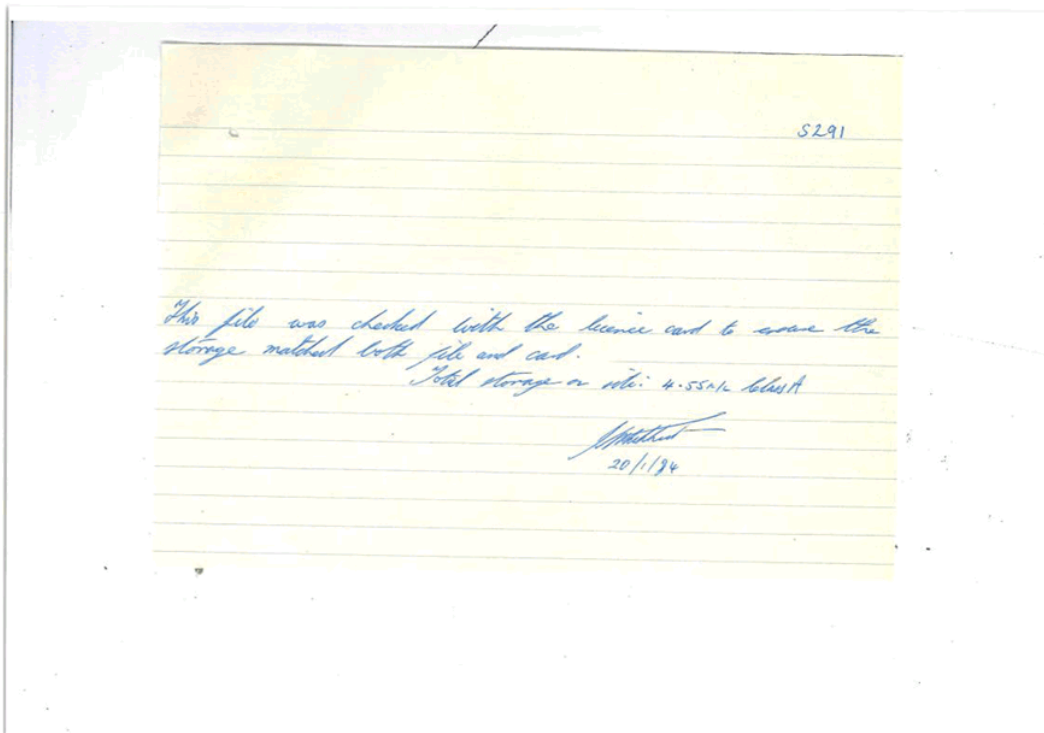 S291
This file was checked with the licence card to ensure the
storage matched both file and card.
Total storage on site: 4.55 Class A
20/1/94